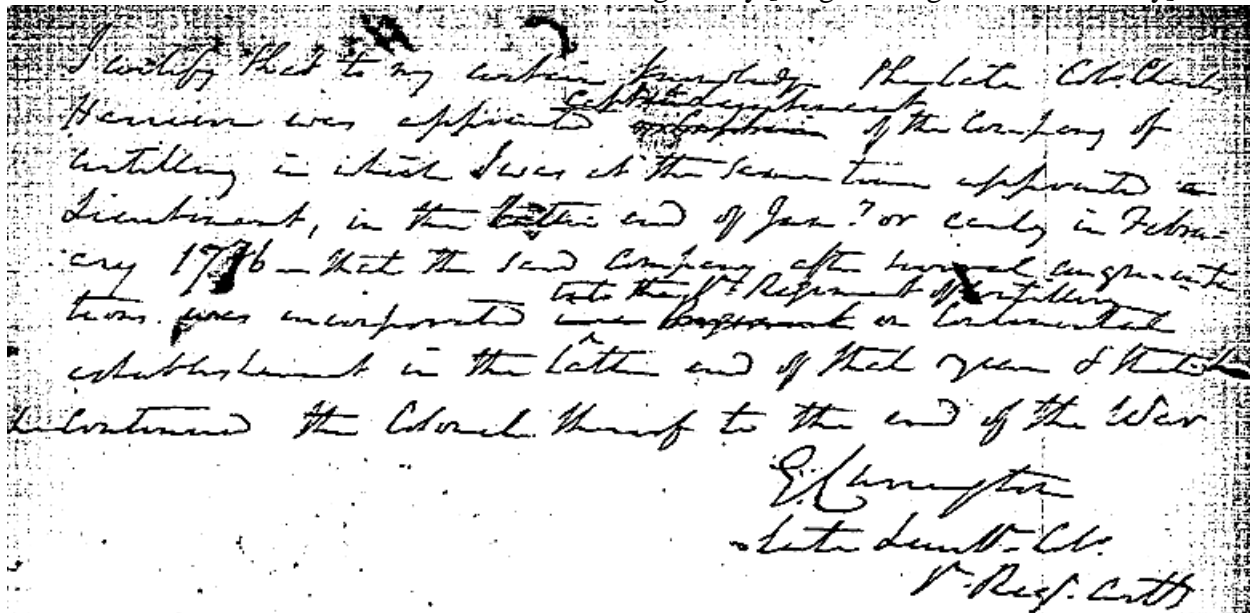 I certify that to my certain knowledge the late Colo. Charles
Harrison was appointed of the Company of
Artillery in which I was at the same time appointed a
Lieutenant, in the latter end of Jany. or early in Febru-
ary 1776 – that the said Company after several augmenta
into the Vª. Regiment of Artillery
tions was incorporated on Continental
establishment in the latter end of that year & that
he continued the Colonel thereof to the end of the War
E Carrington
Late Lieutt. Col.
Vª. Regt. Artty